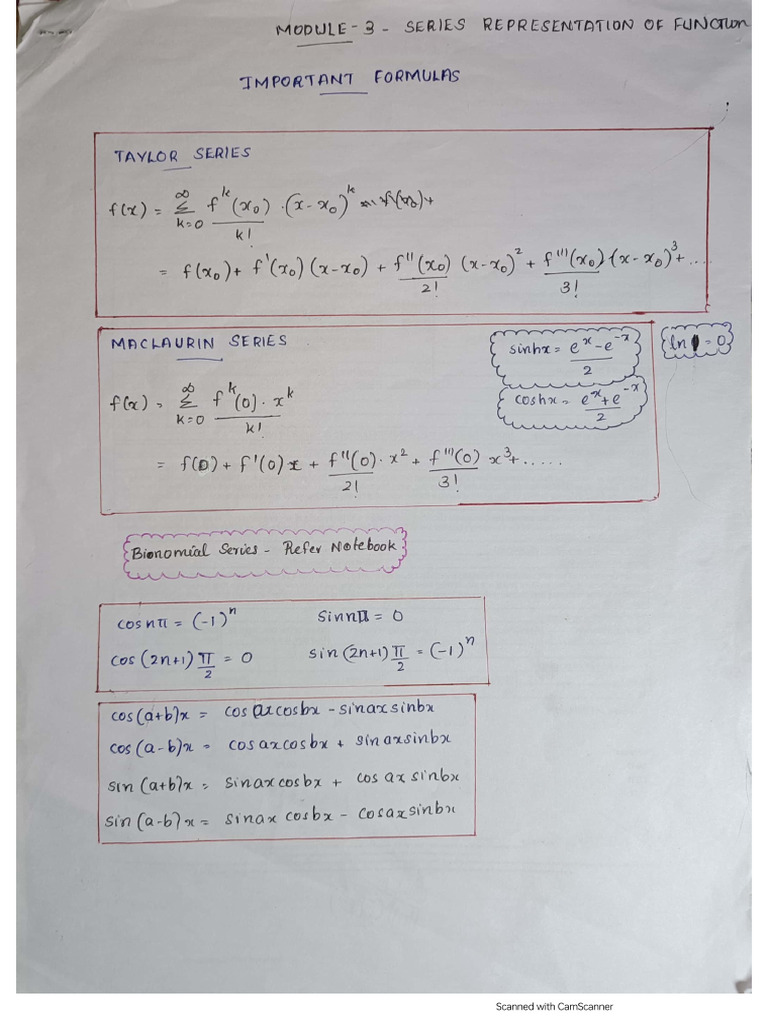 MODULE-3 - SERIES REPRESENTATION OF FUNCTION
IMPORTANT FORMULAS
TAYLOR SERIES
f(x) = ∞ Σ k=0 f^k(x₀) / k! · (x-x₀)^k
= f(x₀) + f'(x₀)(x-x₀) + f''(x₀)/2! (x-x₀)² + f'''(x₀)/3! (x-x₀)³ + ....
MACLAURIN SERIES
sinhx = e^x - e^-x / 2
ln 1 = 0
coshx = e^x + e^-x / 2
f(x) = ∞ Σ k=0 f^k(0) · x^k / k!
= f(0) + f'(0) x + f''(0)/2! · x² + f'''(0)/3! x³ + .....
Bionomial Series - Refer Notebook
cos nπ = (-1)^n sin nπ = 0
cos (2n+1) π/2 = 0 sin (2n+1) π/2 = (-1)^n
cos(a+b)x = cos ax cos bx - sin ax sin bx
cos (a-b)x = cos ax cos bx + sin ax sin bx
sin (a+b)x = sin ax cos bx + cos ax sin bx
sin (a-b)x = sin ax cos bx - cos ax sin bx
Scanned with CamScanner